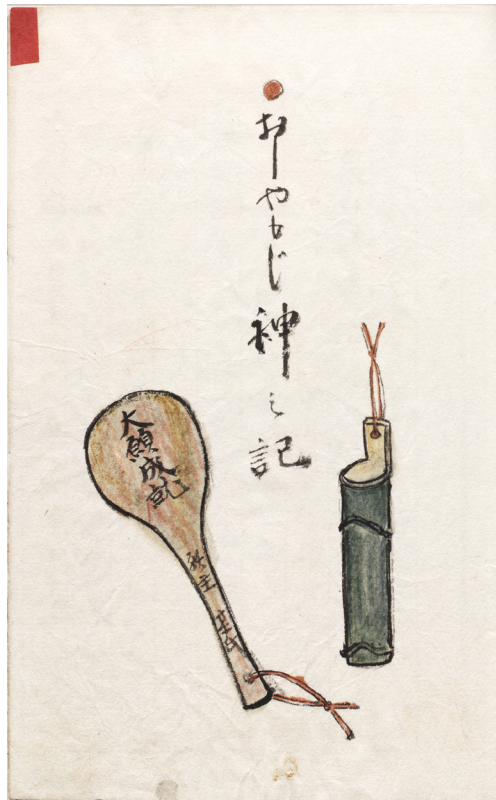 おしやもじ神之記
大願成就
願主